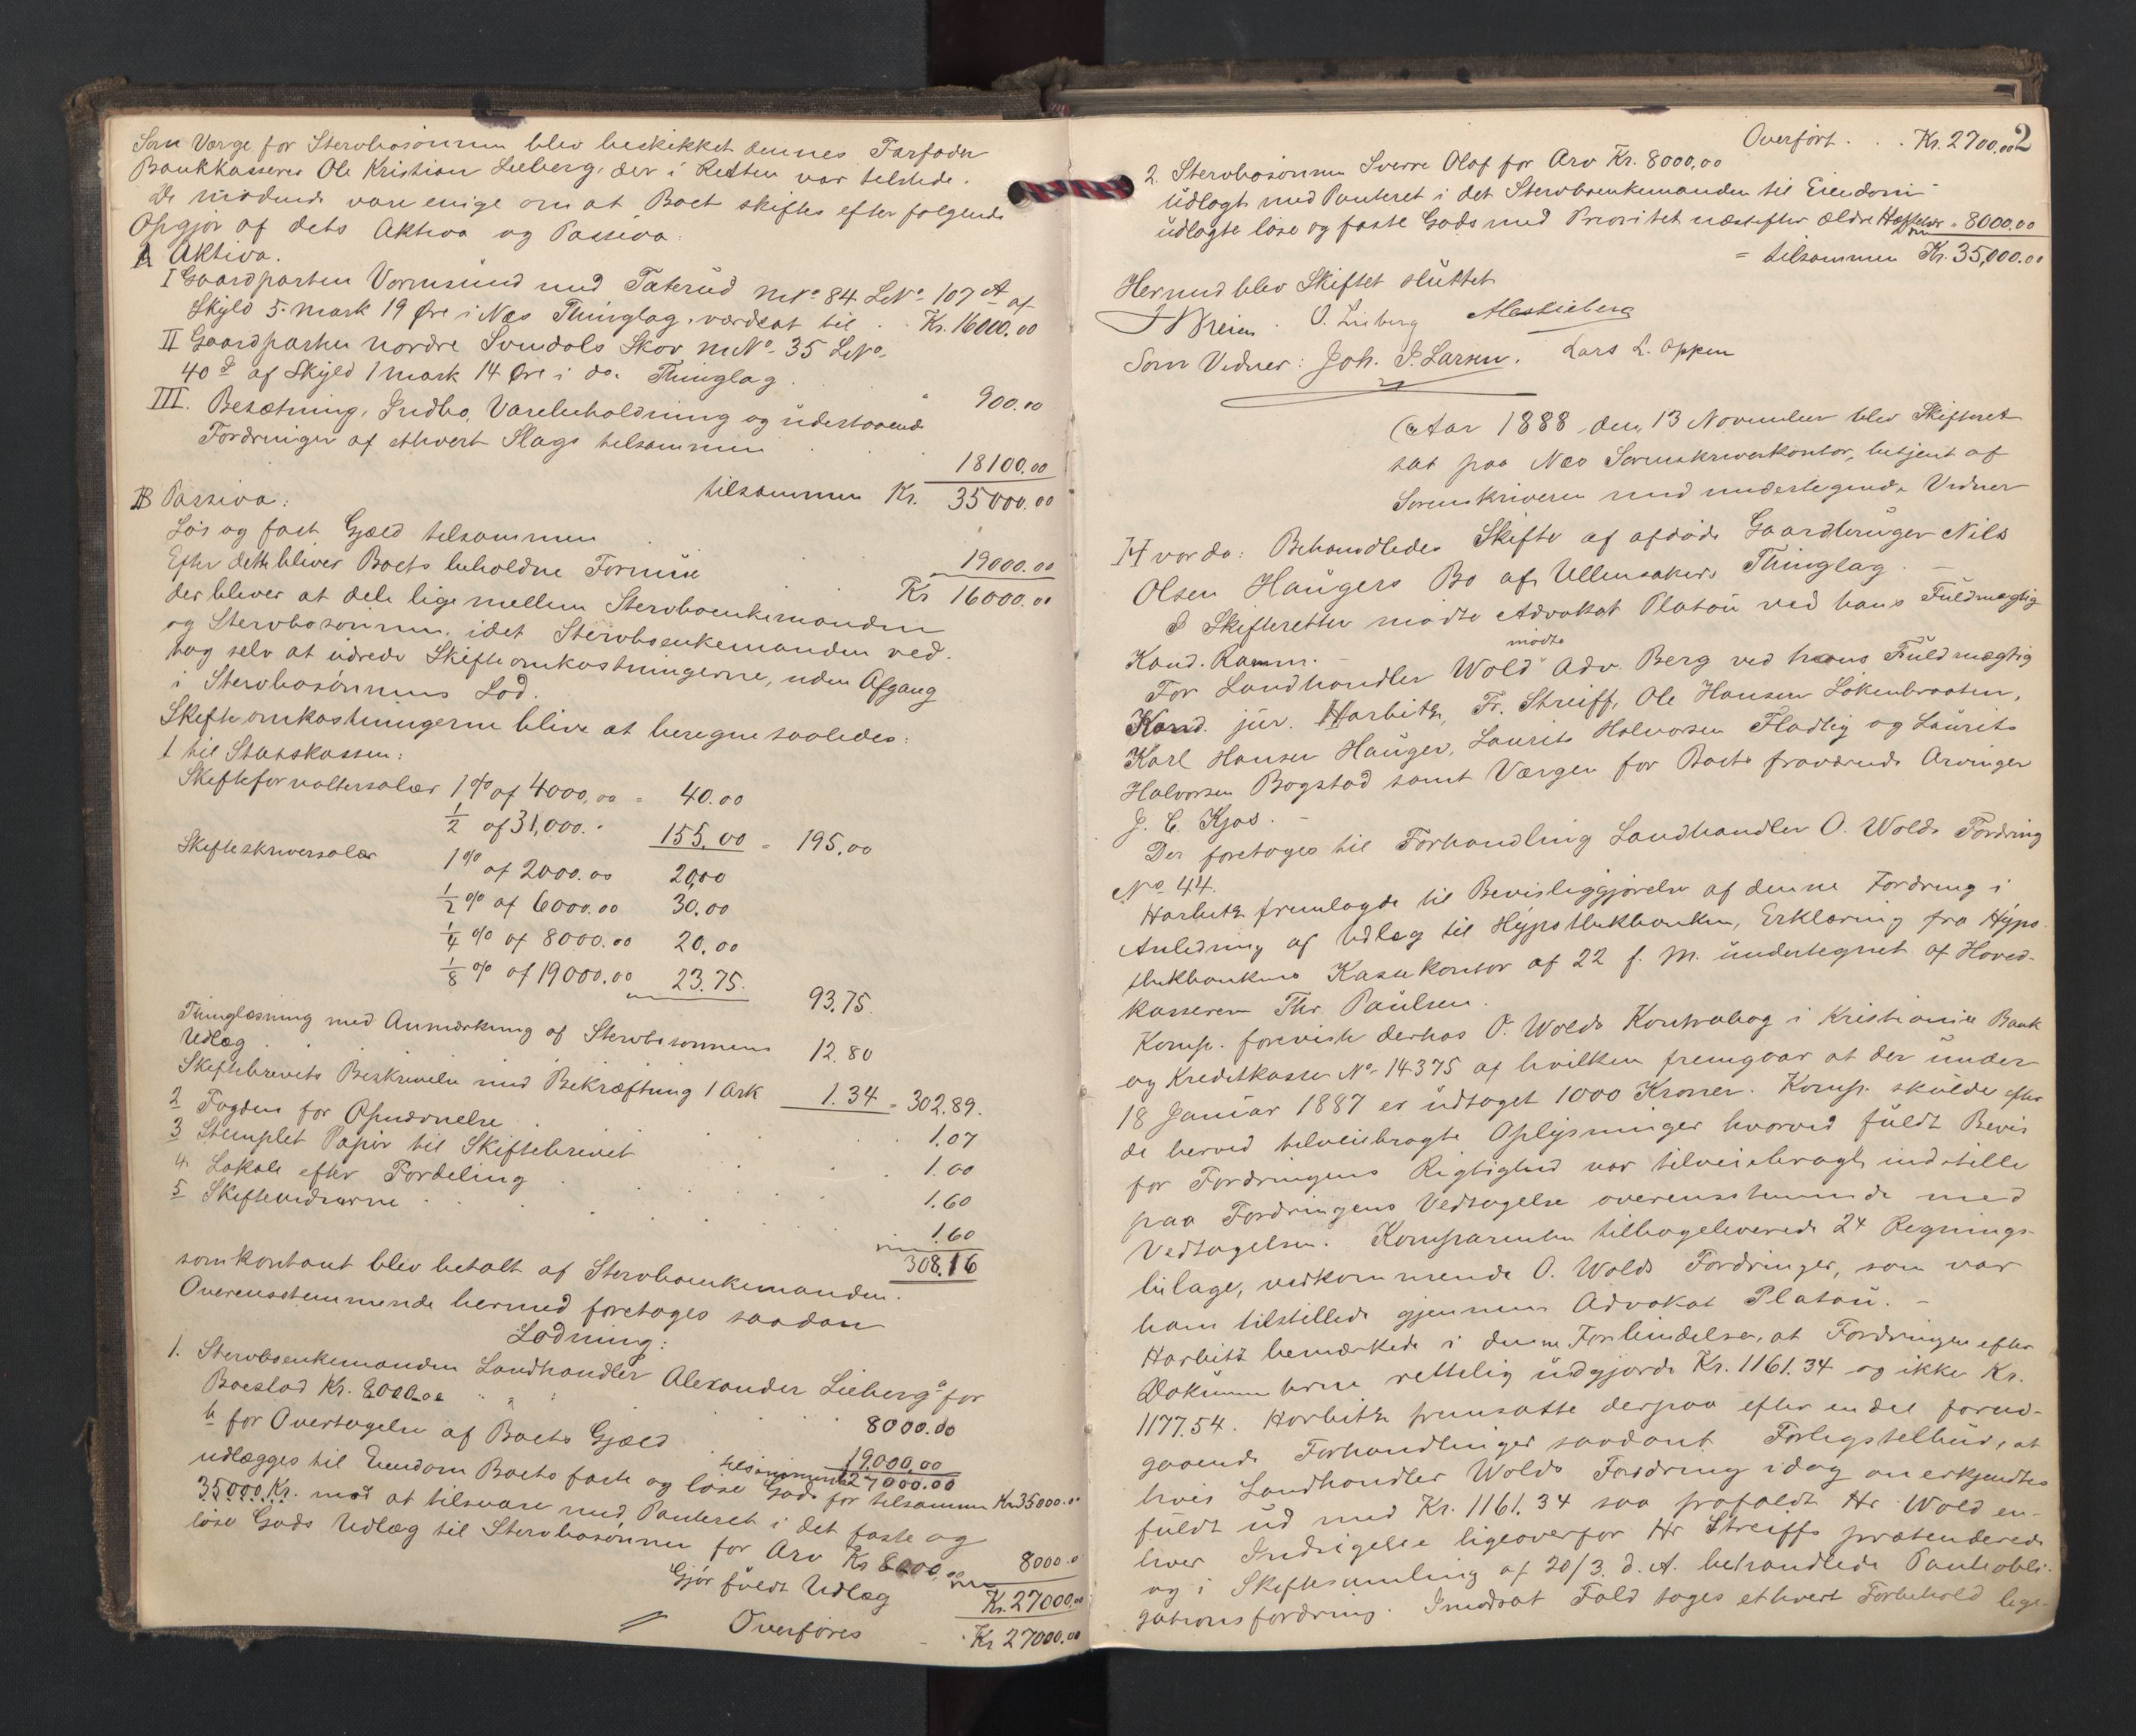 Som Værge for Stervbosønnen blev beskikket dennes Farfader
Bankkasserer Ole Kristian Lieberg, der i Retten var tilstede.
De mødende vare enige om at Boet skiftes efter følgende
Opgjør af dets Aktiva og Passiva:
A Aktiva.
I Gaardparten Vormsund med Taterud MNo 84 LNo 107 A af
Skyld 5 Mark 19 Øre i Næs Thinglag, værdsat til . . Kr. 16000.00
II Gaardparten nordre Svendals Skov MNo 35 LNo
40 d af Skyld 1 Mark 14 Øre i do. Thinglag . . . " 900.00
III. Besætning, Indbo, Varebeholdning og udestaaende
Fordringer af ethvert Slags tilsammen . . . 18100.00
tilsammen Kr. 35000.00
B Passiva:
Løs og fast Gjæld tilsammen . . . 19000.00
Efter dette bliver Boets beholdne Formue . . Kr 16000.00
der bliver at dele lige mellem Stervboenkemanden
og Stervbosønnen, idet Stervboenkemanden ved-
tog selv at udrede Skifteomkostningerne, uden Afgang
i Stervbosønnens Lod.
Skifteomkostningerne blive at beregne saaledes:
1 til Statskassen:
Skifteforvaltersalær 1 % af 4000,00 = 40.00
1/2 af 31,000. " 155.00 = 195,00
Skifteskriversalær 1 % af 2000.00 20,00
1/2 % af 6000.00 30.00
1/4 % af 8000.00 20.00
1/8 % af 19000.00 23.75. 93.75.
Thinglæsning med Anmærkning af Stervbosønnens
Udlæg . . 12.80
Skiftebrevets Beskrivelse med Bekræftning 1 Ark 1.34 = 302.89.
2 Fogden for Opnævnelse . . . 1.07
3 Stemplet Papir til Skiftebrevet . . . 1.00
4 Lokale efter Fordeling . . . 1.60
5 Skiftevidnerne . . . 1.60
308.16
som kontant blev betalt af Stervboenkemanden.
Overensstemmende hermed foretoges saadan
Lodning:
1. Stervboenkemanden Landhandler Alexander Lieberg a for
Boeslod Kr. 8000.00 " " " 8000.00
b for Overtagelse af Boets Gjæld 19,000,00
tilsammen 27000.00
udlægges til Eiendom Boets faste og løse Gods for tilsammen Kr 35000.00
35000 Kr. mod at tilsvare med Panteret i det faste og
løse Gods Udlæg til Stervbosønnen for Arv Kr 8000,00 8000.0
Gjør fuldt Udlæg Kr. 27000.00
Overføres Kr 27000.00
2
Overført . . . Kr. 2700.00
2. Stervbosønnen Sverre Olaf for Arv Kr. 8000,00
udlagt med Panteret i det Stervboenkemanden til Eiendom
udlagte løse og faste Gods med Prioritet næstefter ældre Heftelser = 8000.00
= tilsammen Kr. 35,000.00
Hermed blev Skiftet sluttet
O. Lieberg Alex Lieberg
Som Vidner: Joh. P. Larsen. Lars L. Oppen
Aar 1888 den 13 November blev Skifteret
sat paa Næs Sorenskriverkontor, betjent af
Sorenskriveren med undertegnede Vidner
Hvorda: Behandledes Skifte af afdøde Gaardbruger Nils
Olsen Haugers Bo af Ullensakers Thinglag.
I Skifteretten mødte Advokat Platou ved hans Fuldmægtig
Kand. Ramm. –
For Landhandler Wold mødte Adv. Berg ved hans Fuldmægtig
Kand. jur. Harbitz, Fr. Streiff, Ole Hansen Løkenbraaten,
Karl Hansen Hauger, Laurits Halvorsen Fladby og Laurits
Halvorsen Bogstad samt Værgen for Boets fraværende Arvinger
J. C. Kjos. –
Der foretoges til Forhandling Landhandler O. Wolds Fordring
No 44.
Harbitz fremlagde til Bevisliggjørelse af denne Fordring i
Anledning af Udlæg til Hypothekbanken, Erklæring fra Hypo-
thekbankens Kassekontor af 22 f. M. undertegnet af Hoved-
kasserer Thr. Paulsen.
Komp. foreviste derhos O. Wolds Kontrabog i Kristiania Bank
og Kreditkasse No 14375 af hvilken fremgaar at der under
18 Januar 1887 er udtaget 1000 Kroner. Komp. skulde efter
de herved tilveiebragte Oplysninger hvorved fuldt Bevis
for Fordringens Rigtighed var tilveiebragt indstille
paa Fordringens Vedtagelse overensstemmende med
Vedtagelsen. Komparenten tilbageleverede 24 Regnings-
bilage, vedkommende O. Wolds Fordringer, som var
ham tilstillede gjennem Advokat Platou. –
Harbitz bemærkede i denne Forbindelse, at Fordringen efter
Dokumenterne rettelig udgjorde Kr. 1161.34 og ikke Kr.
1177.54. Harbitz fremsatte derpaa efter endel forud-
gaaende Forhandlinger saadant Forligstilbud, at
hvis Landhandler Wolds Fordring idag anerkjendtes
fuldt ud med Kr. 1161.34 saa frafaldt Hr Wold en-
hver Indsigelse ligeoverfor Hr Streiffs prætenderede
og i Skiftesamling af 20/3 d. A. behandlede Panteobli-
gationsfordring. I modsat Fald toges ethvert Forbehold lige-